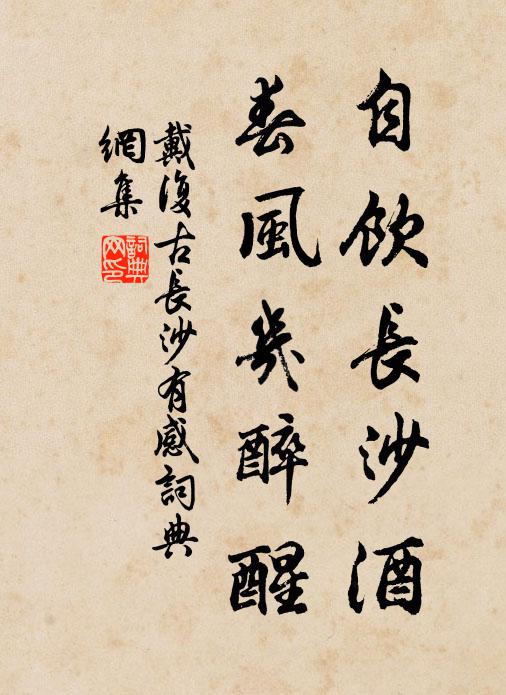 自飲長沙酒
春風幾醉醒
戴復古長沙有感詞典
網集
詞典
网印